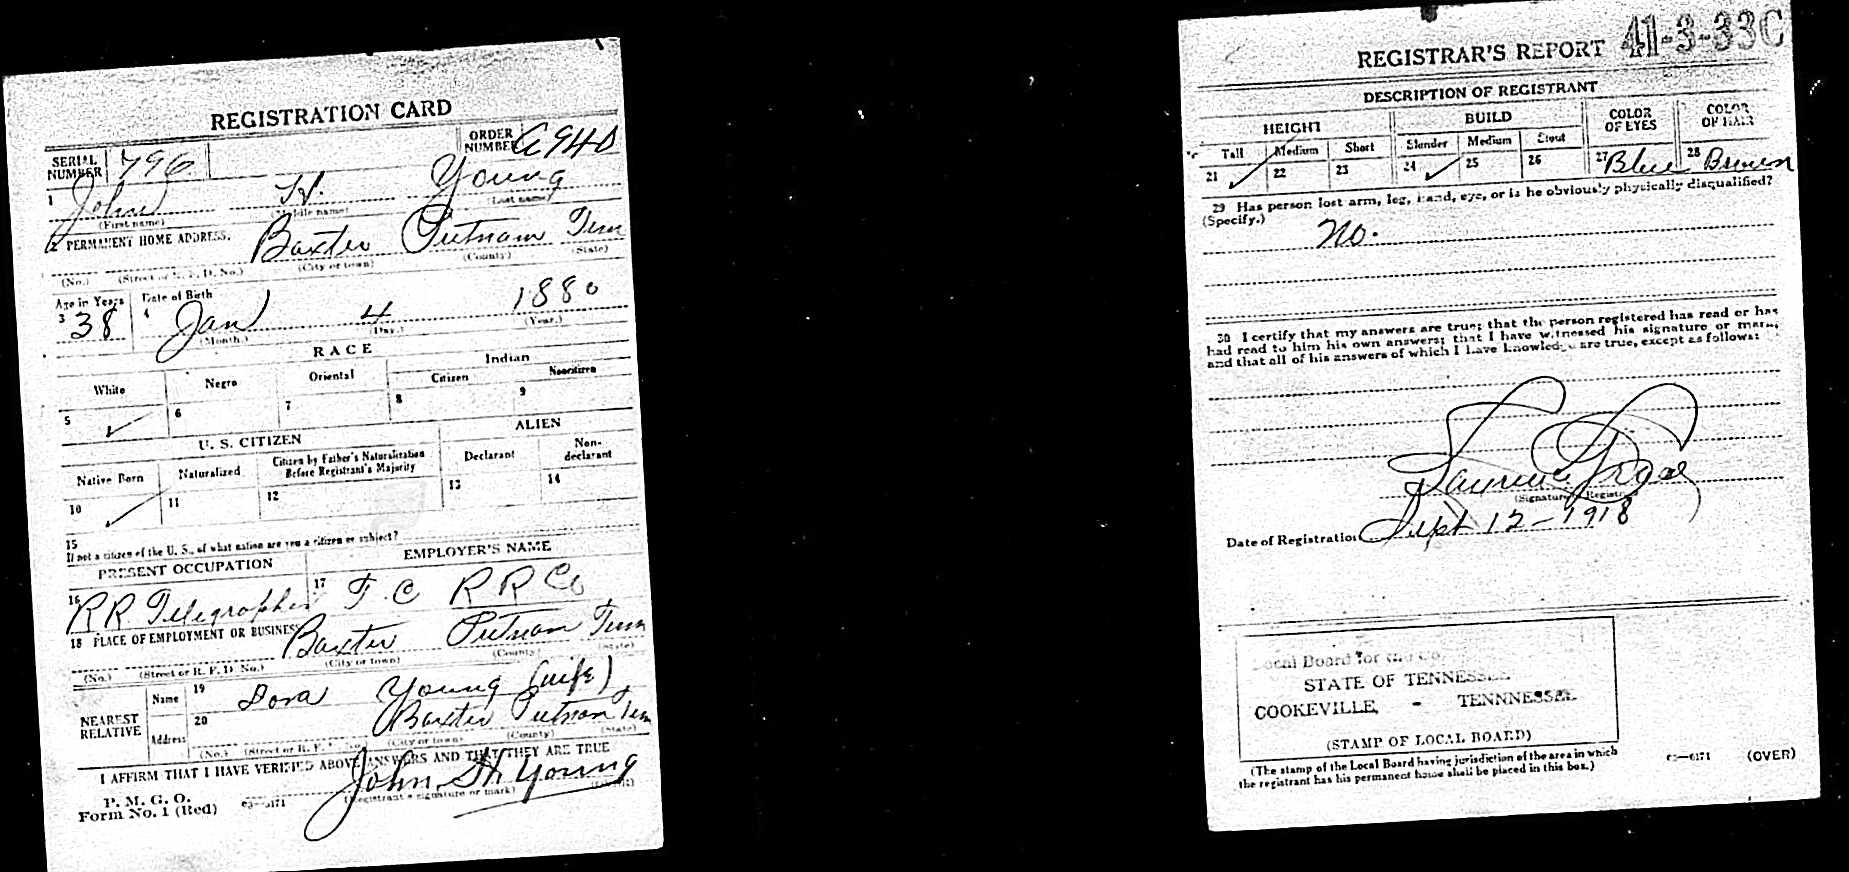 REGISTRATION CARD
SERIAL NUMBER 796 ORDER NUMBER A940
1 John H. Young
(First name) (Middle name) (Last name)
2 PERMANENT HOME ADDRESS. Baxter Putnam Tenn
(No.) (Street or R. F. D. No.) (City or town) (County) (State)
Age in Years Date of Birth
3 38 4 Jan 4 1880
(Month.) (Day.) (Year.)
RACE
White Negro Oriental Indian
Citizen Noncitizen
5 ✓ 6 7 8 9
U. S. CITIZEN ALIEN
Native Born Naturalized Citizen by Father's Naturalization Before Registrant's Majority Declarant Non-declarant
10 ✓ 11 12 13 14
15
If not a citizen of the U. S., of what nation are you a citizen or subject?
PRESENT OCCUPATION EMPLOYER'S NAME
16 RR Telegrapher 17 T. C R R Co
18 PLACE OF EMPLOYMENT OR BUSINESS Baxter Putnam Tenn
(No.) (Street or R. F. D. No.) (City or town) (County) (State)
NEAREST RELATIVE Name 19 Dora Young (wife)
Address 20 Baxter Putnam Tenn
(No.) (Street or R. F. D. No.) (City or town) (County) (State)
I AFFIRM THAT I HAVE VERIFIED ABOVE ANSWERS AND THAT THEY ARE TRUE
P. M. G. O.
Form No. 1 (Red) 03—6171 John H Young
(Registrant's signature or mark) (OVER)
REGISTRAR'S REPORT 41-3-33C
DESCRIPTION OF REGISTRANT
HEIGHT BUILD COLOR OF EYES COLOR OF HAIR
Tall Medium Short Slender Medium Stout
21 ✓ 22 23 24 ✓ 25 26 27 Blue 28 Brown
29 Has person lost arm, leg, hand, eye, or is he obviously physically disqualified?
(Specify.) No.
30 I certify that my answers are true; that the person registered has read or has
had read to him his own answers; that I have witnessed his signature or mark;
and that all of his answers of which I have knowledge are true, except as follows:
(Signature of Registrar)
Date of Registration Sept 12 - 1918
Local Board for the Co.
STATE OF TENNESSEE
COOKEVILLE, - TENNNESSEE
(STAMP OF LOCAL BOARD)
(The stamp of the Local Board having jurisdiction of the area in which
the registrant has his permanent home shall be placed in this box.)
03—6171 (OVER)